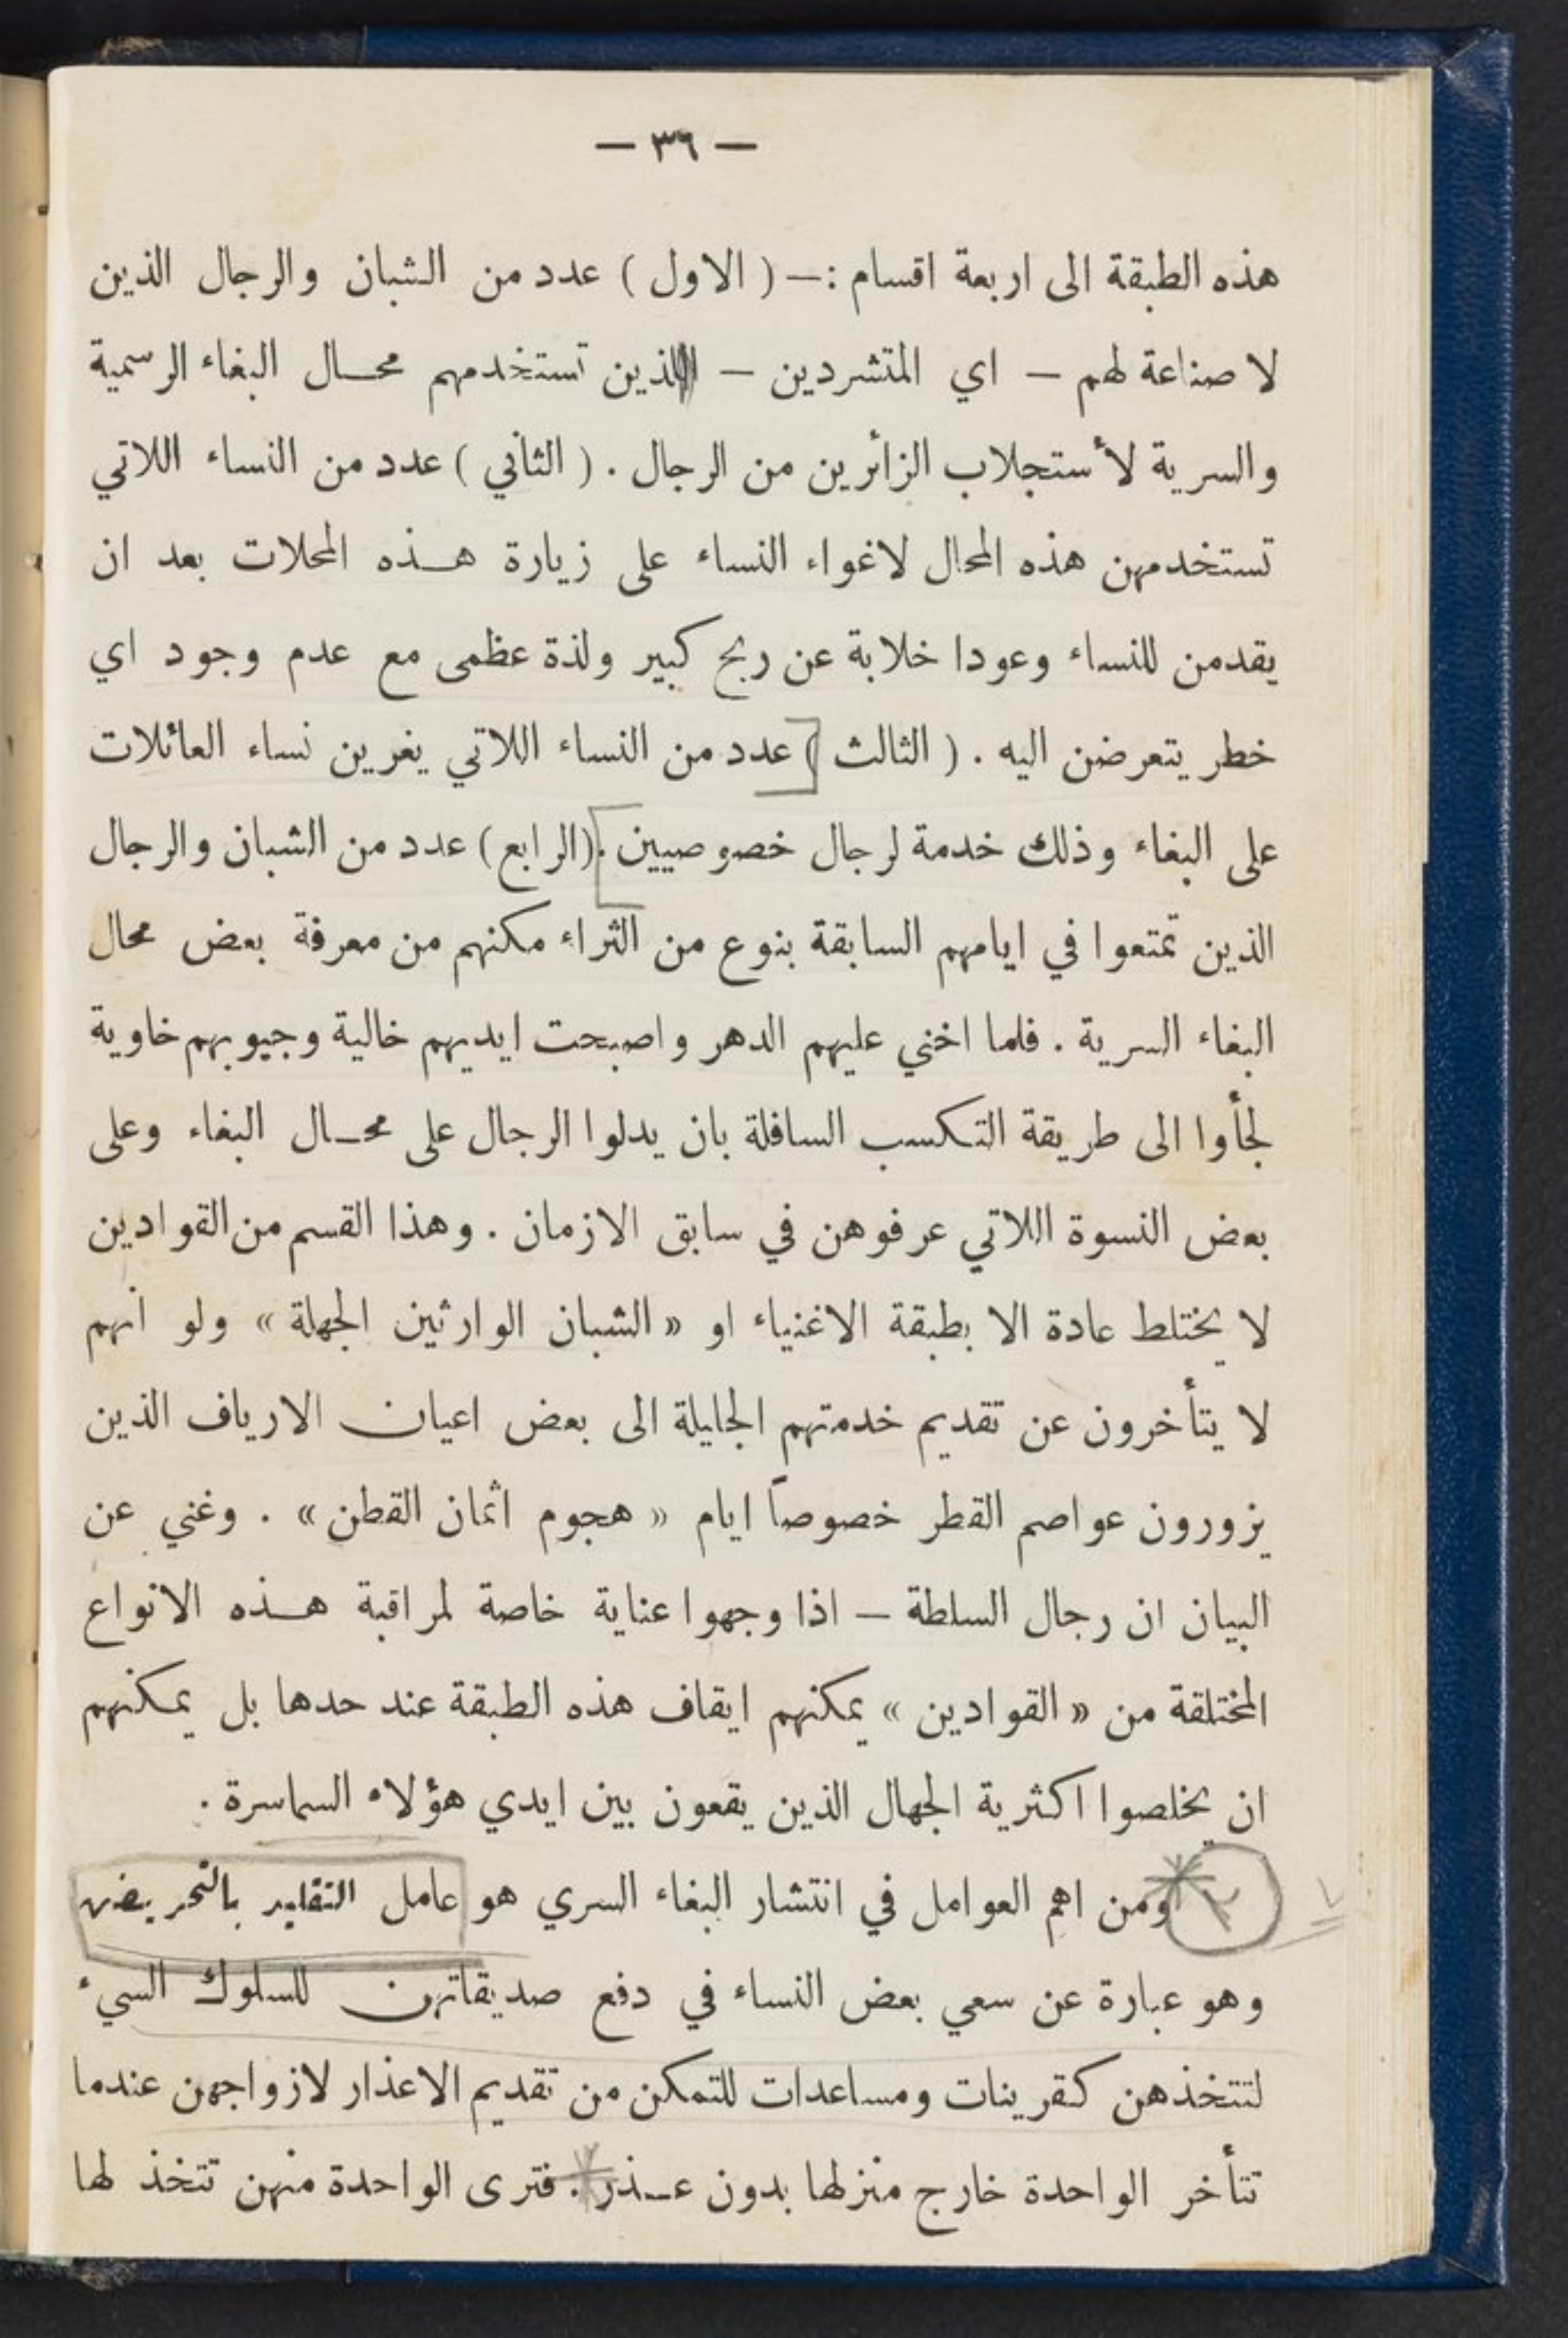 — ٣٦ —
هذه الطبقة الى اربعة اقسام :— ( الاول ) عدد من الشبان والرجال الذين
لا صناعة لهم — اي المتشردين — الذين تستخدمهم محال البغاء الرسمية
والسرية لأستجلاب الزائرين من الرجال . ( الثاني ) عدد من النساء اللاتي
تستخدمهن هذه المحال لاغواء النساء على زيارة هذه المحلات بعد ان
يقدمن للنساء وعودا خلابة عن ربح كبير ولذة عظمى مع عدم وجود اي
خطر يتعرضن اليه . ( الثالث ) عدد من النساء اللاتي يغرين نساء العائلات
على البغاء وذلك خدمة لرجال خصوصيين . (الرابع) عدد من الشبان والرجال
الذين تمتعوا في ايامهم السابقة بنوع من الثراء مكنهم من معرفة بعض محال
البغاء السرية . فلما اخني عليهم الدهر واصبحت ايديهم خالية وجيوبهم خاوية
لجأوا الى طريقة التكسب السافلة بان يدلوا الرجال على محال البغاء وعلى
بعض النسوة اللاتي عرفوهن في سابق الازمان . وهذا القسم من القوادين
لا يختلط عادة الا بطبقة الاغنياء او « الشبان الوارثين الجهلة » ولو انهم
لا يتأخرون عن تقديم خدمتهم الجليلة الى بعض اعيان الارياف الذين
يزورون عواصم القطر خصوصاً ايام « هجوم اثمان القطن » . وغني عن
البيان ان رجال السلطة — اذا وجهوا عناية خاصة لمراقبة هذه الانواع
المختلفة من « القوادين » يمكنهم ايقاف هذه الطبقة عند حدها بل يمكنهم
ان يخلصوا اكثرية الجهال الذين يقعون بين ايدي هؤلاء السماسرة .
٢ ومن اهم العوامل في انتشار البغاء السري هو عامل التقليد بالتحريض
وهو عبارة عن سعي بعض النساء في دفع صديقاتهن للسلوك السيء
لتتخذهن كقرينات ومساعدات للتمكن من تقديم الاعذار لازواجهن عندما
تتأخر الواحدة خارج منزلها بدون عذر . فترى الواحدة منهن تتخذ لها